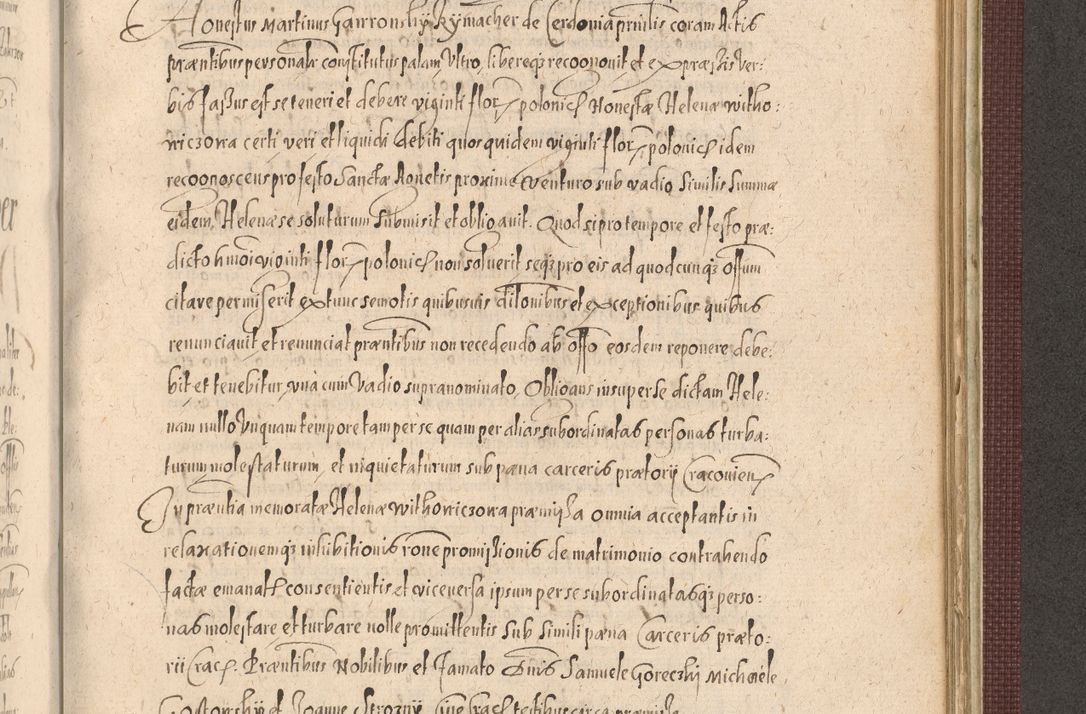 Honestus Martinus Gawronsky Rymacher de Cerdonia prmilis coram Actis
præntibus personalr constitutus palam Vltro, libereq3 recognouit et expræssis ver-
bis fassus est se teneri et debere viginti flor polonicl Honestæ Helenæ Witho:
wiczowa certi veri et liquidi debiti quos quidem viginti flor polonicl idem
recognoscens pro festo Sanctæ Agnetis proxime venturo sub vadio Similis Summæ
eidem Helenæ se soluturum Submisit et obligauit. Quod si pro tempore et festo præ:
dicto hmoi viginti flor polonicl non soluerit seq3 pro eis ad quodcunq3 offum
citare permiserit ex tunc semotis quibusuis ditonibus et exceptionibus quibus
renunciauit et renunciat præntibus non recedendo ab offo eosdem reponere debe:
bit et tenebitur, vna cum Vadio supranominato, Obligans insuper se dictam Hele:
nam nullo Vnquam tempore tam per se quam per alias subordinatas personas turba:
turum molestaturum, et inquietaturum sub pæna carceris prætorij Cracouien
In præntia memoratæ Helenæ Withowiczowa præmissa omnia acceptantis in
relaxationemq3 inhibitionis rone promissionis de matrimonio contrahendo
factæ emanatæ consentientis et viceuersa ipsum per se subordinatasq3 perso:
nas molestare et turbare nolle promittentis Sub Simili pæna Carceris præto:
rii Cracl. Præntibus Nobilibus et famato Dnis Samuele Goreczky Michaele
et Joanne